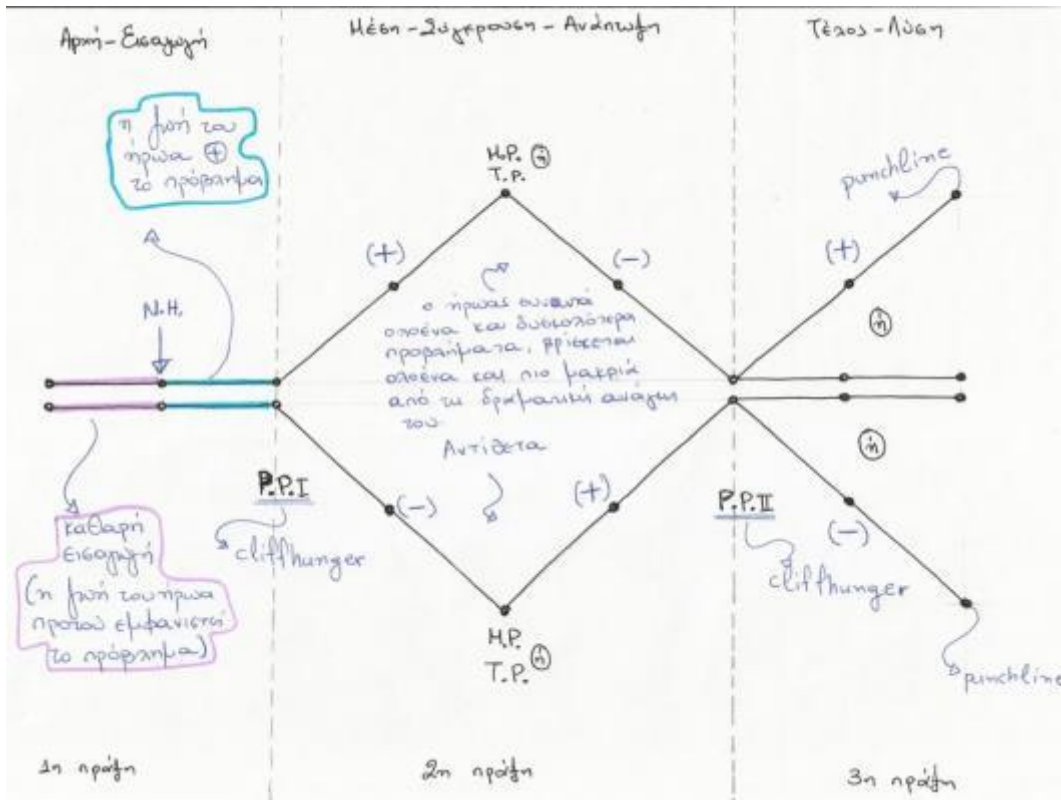 Αρχή-Εισαγωγή
Μέση-Σύγκρουση-Ανάπτυξη
Τέλος-Λύση
η ζωή του
ήρωα +
το πρόβλημα
N.H.
M.P. ή
T.P.
(+)
(-)
ο ήρωας συναντά
ολοένα και δυσκολότερα
προβλήματα, βρίσκεται
ολοένα και πιο μακριά
από τη δραματική ανάγκη
του.
Αντίθετα
(-)
(+)
M.P.
T.P. ή
P.P.I
cliffhunger
καθαρή
εισαγωγή
(η ζωή του ήρωα
προτού εμφανιστεί
το πρόβλημα)
punchline
(+)
ή
ή
P.P.II
cliffhunger
(-)
punchline
1η πράξη
2η πράξη
3η πράξη